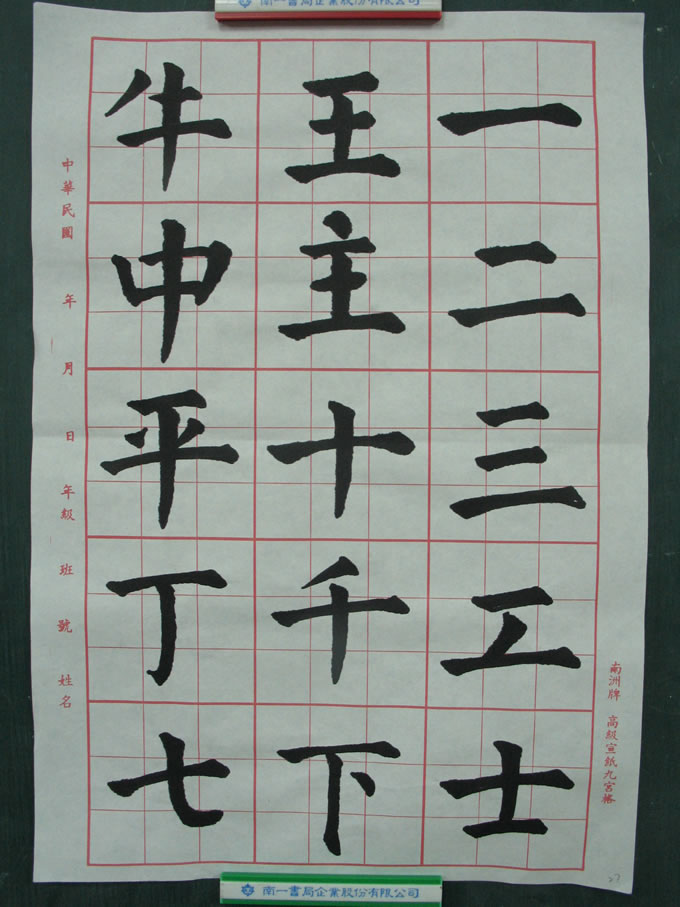 南一書局企業股份有限公司
南洲牌 高級宣紙九宮格
一二三工士
王主十千下
牛中平丁七
中華民國 年 月 日 年級 班 號 姓名
南一書局企業股份有限公司